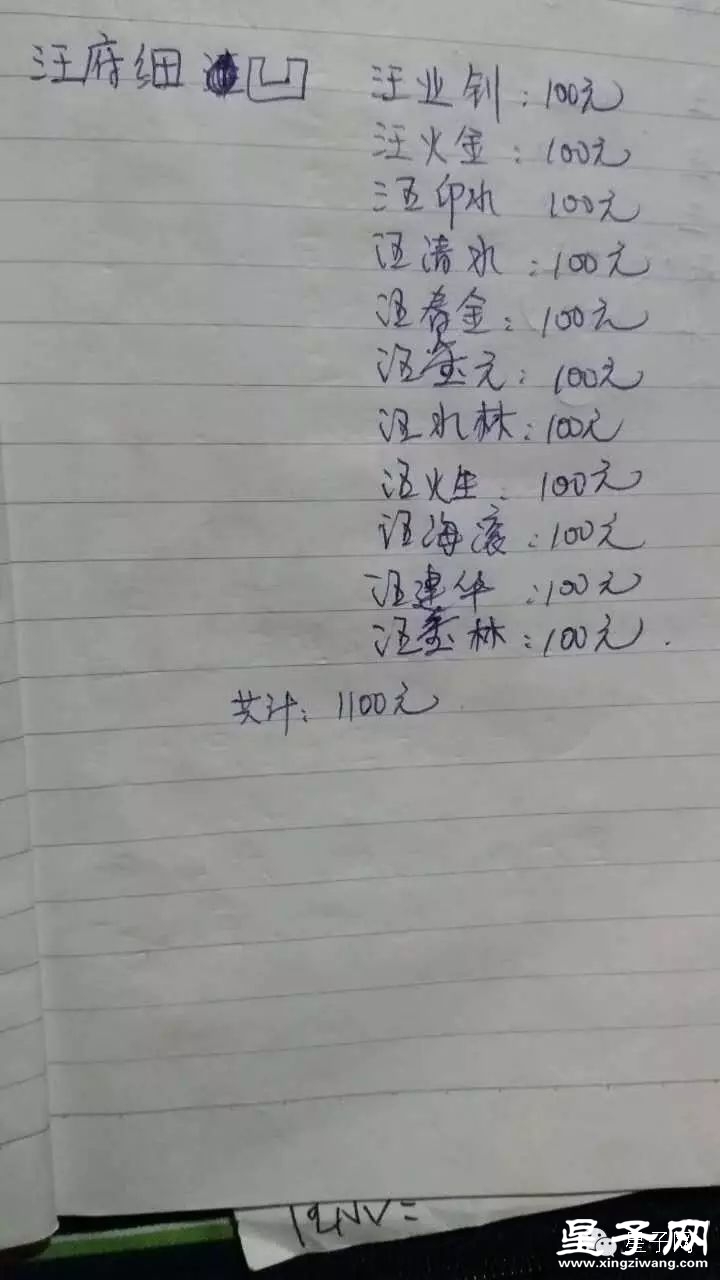 汪府细凹
汪业钊：100元
汪火金：100元
汪印水 100元
汪清水：100元
汪春金：100元
汪金元：100元
汪水林：100元
汪火生：100元
汪海滚：100元
汪建华：100元
汪林：100元.
共计：1100元
星子网
星子网
www.xingziwang.com